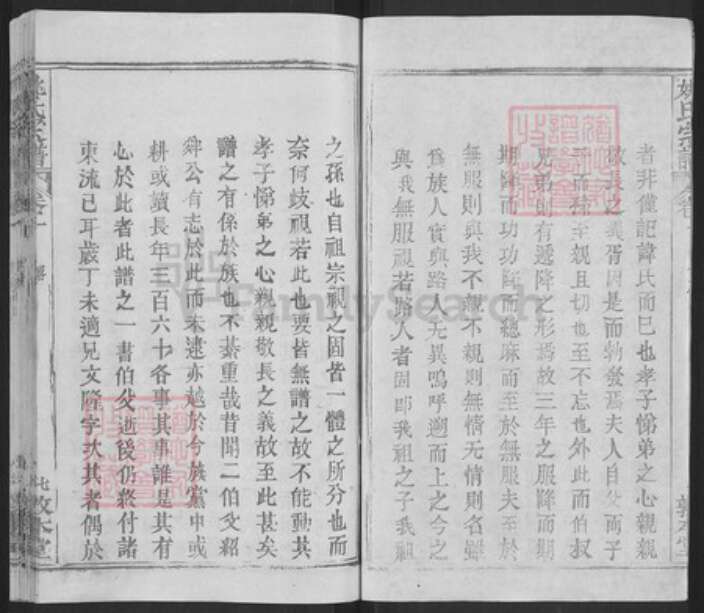 姚氏宗譜
卷一
敦本堂
者非僅記諱氏而已也孝子悌弟之心親親
敬長之義胥因是而勃發焉夫人自父而子
而孫至親且切也至不忘也外此而伯叔
兄弟則有遞降之形焉故三年之服降而期
期降而功功降而緦麻而至於無服夫至於
無服則與我不親不親則無情无情則名雖
爲族人實與路人无異嗚呼遡而上之今之
與我無服視若路人者固即我祖之子我祖
之孫也自祖宗視之固皆一體之所分也而
奈何歧視若此也要皆無譜之故不能動其
孝子悌弟之心親親敬長之義故至此甚矣
譜之有係於族也不綦重哉昔聞二伯父紹
舜公有志於此而未逮亦越於今族黨中或
耕或讀長年三百六十各事其事誰是其有
心於此者此譜之一書伯父逝後仍終付諸
東流已耳歲丁未適兄文隆字次其者偶於
姚氏宗譜
卷一
敦本堂
FamilySearch